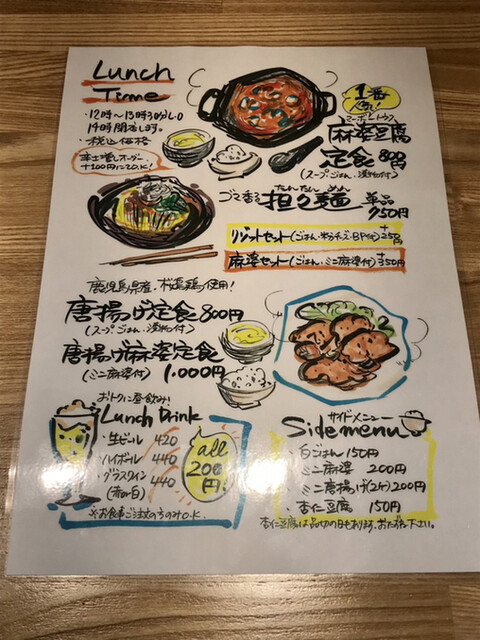 Lunch
Time
・12時〜13時30分L.O
14時閉店します。
・税込価格
辛さ増しオーダー
+100円にてO.K!
1番
人気!
マーボードウフ
麻婆豆腐
定食 800円
(スープ ごはん・漬物付)
ゴマ香る 担々麺 単品
たんたん めん
750円
リゾットセット(ごはん・粉チーズ・B.P付) +250円
麻婆セット(ごはん、ミニ麻婆付) +350円
鹿児島県産・桜島鶏使用!
唐揚げ定食 800円
(スープ ごはん・漬物付)
唐揚げ麻婆定食
(ミニ麻婆付) 1.000円
おトクに昼飲み!
Lunch Drink
・生ビール 420
・ハイボール 440
・グラスワイン 440
(赤or白)
all
200
円!
※お食事ご注文の方のみO.K.
サイドメニュー
Side menu
・白ごはん 150円
・ミニ麻婆 200円
・ミニ唐揚げ(2ヶ) 200円
・杏仁豆腐 150円
杏仁豆腐は品切の日もあります、おたずね下さい。